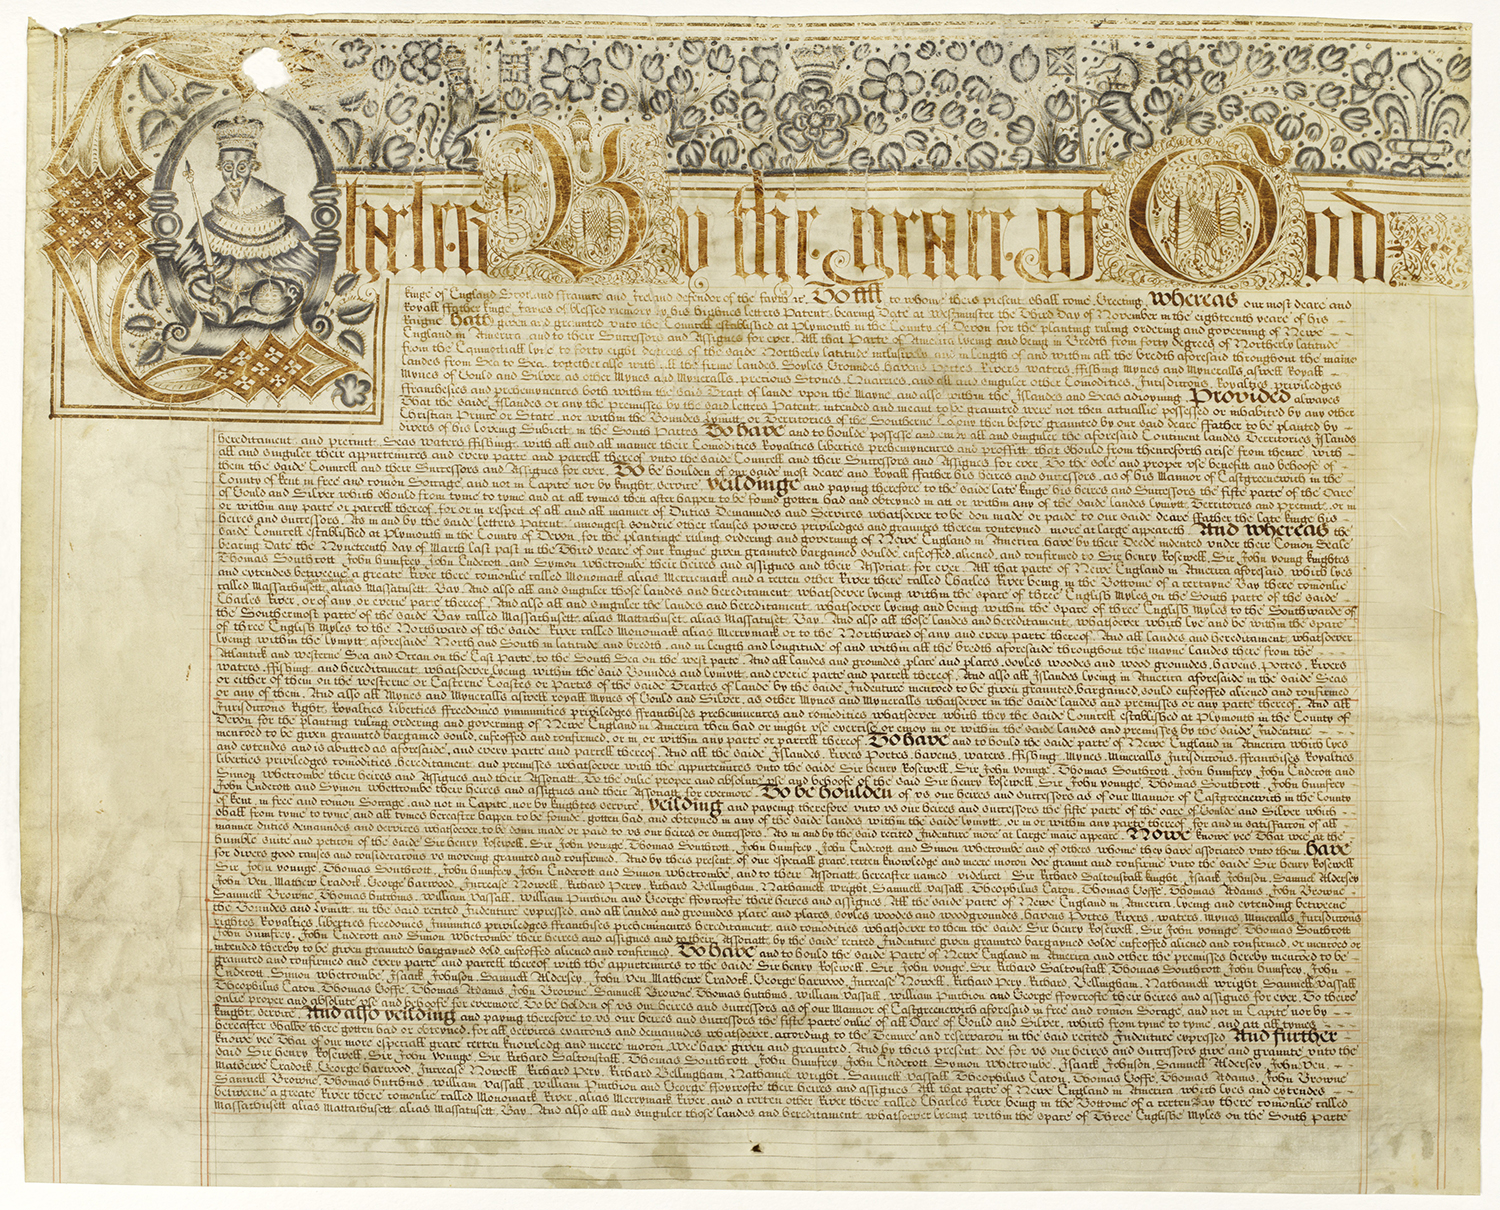 Charles By the grace of God
kinge of England Scotland ffraunce and Ireland defender of the fayth &c. To all to whome theis present shall come Greeting. whereas our most deare and
Royall ffather kinge James of blessed memory by his highnes letters Patent bearing Date at westminster the Third day of November in the eighteenth yeare of his
Raigne hath given and graunted vnto the Councell established at Plymouth in the County of Devon for the planting ruling ordering and governing of Newe
England in America and to their Successors and Assignes for ever. All that Parte of America lyeing and being in Bredth from forty degrees of Northerly latitude
from the Equinoctiall lyne to forty eight degrees of the saide Northerly latitude inclusively and in length of and within all the bredth aforesaid throughout the maine
landes from Sea to Sea, together also with all the firme landes Soyles Groundes havens Portes Rivers waters ffishing Mynes and Myneralls aswell Royall
Mynes of Gould and Silver as other Mynes and Myneralls, precious Stones, Quarries, and all and singuler other Comodities, Jurisdiccons, Royalties, priviledges
ffranchesies and prehemynences both within the said Tract of lande vpon the Mayne and also within the Islandes and Seas adioyning. Provided alwayes
That the saide Islandes or any the premisses by the said letters Patent intended and meant to be graunted were not then actuallie possessed or inhabited by any other
Christian Prince or State nor within the Boundes Lymitt or Territories of the Southerne Colony then before graunted by our said deare ffather to be planted by
divers of his loveing Subiect in the South Partes To have and to houlde possesse and enioy all and singuler the aforesaid Continent landes Territories Islands
hereditament and precinct, Seas waters ffishing with all and all manner their Comodities Royalties liberties prehemynences and proffitt that should from thenceforth arise from thence with
all and singuler their appurtenances and every parte and parcell thereof vnto the saide Councell and their Successors and Assignes for ever. To the sole and proper vse benefit and behoofe of
them the saide Councell and their Successors and Assignes for ever. To be houlden of our saide most deare and Royall ffather his heires and successors, as of his Mannor of Eastgreenewich in the
County of kent in free and comon Soccage, and not in Capite nor by knight service yeildinge and paying therefore to the saide late kinge his heires and Successors the fifte parte of the Oare
of Gould and Silver which should from tyme to tyme and at all tymes then after happen to be found gotten had and obteyned in att or within any of the saide landes lymytt Territories and Precinct, or in
or within any parte or parcell thereof, for or in respect of all and all manner of Duties Demaundes and Services whatsoever to be don made or paid to our saide deare ffather the late kinge his
heires and successors, As in and by the saide letters Patent amongest sondrie other clauses powers priviledges and grauntes therein conteyned more at large appeareth And whereas the
saide Councell established at Plymouth in the County of Devon, for the plantinge ruling, ordering, and governing of Newe England in America have by their Deede indented vnder their Comon Seale
bearing Date the Nyneteenth day of March last past in the Third yeare of our Raigne given graunted bargained soulde enfeoffed, aliened, and confirmed to Sir henry Rosewell, Sir John young knightes
Thomas Southcott John humfrey John Endecott and Symon whetcombe their heires and assignes and their Associat for ever. All that parte of Newe England in America aforesaid, which lyes
and extendes betweene a greate River there comonlie called Monomack alias Merriemack and a certen other River there called Charles River being in the Bottome of a certayne Bay there comonlie
called Massachusett, alias Massatusett Bay. And also all and singuler those landes and hereditament whatsoever lyeing within the space of three English Myles on the South parte of the saide
Charles River, or of any, or everie parte thereof. And also all and singuler the landes and hereditament whatsoever lyeing and being within the space of three English Myles to the Southwarde of
the Southermost parte of the saide Bay called Massachusett, alias Mattachuset, alias Massatuset Bay. And also all those landes and hereditament, whatsoever which lye and be within the space
of three English Myles to the Northward of the saide River called Monomack alias Merrymack or to the Northward of any and every parte thereof. And all landes and hereditament whatsoever
lyeing within the lymytt aforesaide North and South in latitude and bredth, and in length and longitude of and within all the bredth aforesaide throughout the mayne landes there from the
Atlantick and westerne Sea and Ocean on the East Parte, to the South Sea on the west parte. And all landes and groundes, place and places, soyles woodes and wood groundes, havens, Portes, Rivers
waters, ffishing, and hereditament whatsoever lyeing within the said Boundes and lymytt, and everie parte and parcell thereof. And also all Islandes lyeing in America aforesaide in the saide Seas
or either of them on the westerne or Easterne Coastes or Partes of the saide Tractes of lande by the saide Indenture menconed to be given graunted bargained sould enfeoffed aliened and confirmed
or any of them. And also all Mynes and Myneralls aswell royall Mynes of Gould and Silver, as other Mynes and Myneralls whatsoever in the saide landes and premisses or any parte thereof. And all
Jurisdiccons Right Royalties Liberties ffreedomes ymmunities priviledges ffranchises preheminences and comodities whatsoever which they the saide Councell established at Plymouth in the County of
Devon for the planting ruling ordering and governing of Newe England in America then had or might vse exercise or enioy in or within the saide landes and premisses by the saide Indenture
menconed to be given graunted bargained sould, enfeoffed and confirmed, or in or within any parte or parcell thereof. To have and to hould the saide parte of Newe England in America which lyes
and extendes and is abutted as aforesaide, and every parte and parcell thereof. And all the saide Islandes, Rivers Portes, havens, waters, ffishing, Mynes, Mineralls, Jurisdiccons, ffranchises Royalties
liberties priviledges comodities, hereditament, and premisses whatsoever with the appurtenances vnto the saide Sir henry Rosewell Sir John younge, Thomas Southcott, John humfrey John Endecott and
Simon whetcombe their heires and Assignes and their Associatt To the onlie proper and absolute vse and behoofe of the said Sir henry Rosewell, Sir John younge, Thomas Southcott, John humfrey
John Endecott and Symon whettcombe their heires and assignes and their Associatt for evermore. To be houlden of vs our heires and successors as of our Mannor of Eastgreenewich in the County
of kent, in free and comon Soccage, and not in Capite, nor by knightes service, yeilding and payeing therefore vnto vs our heires and successors the fifte parte of the oare of Goulde and Silver which
shall from tyme to tyme, and all tymes hereafter happen to be founde, gotten had, and obteyned in any of the saide landes within the saide lymytt, or in or within any parte thereof, for and in satisfaccon of all
manner duties demaundes and services whatsoever to be donn made or paid to vs our heires or successors, As in and by the said recited Indenture more at large maie appeare. Nowe knowe yee That wee at the
humble suite and peticon of the saide Sir henry Rosewell, Sir John younge, Thomas Southcott, John humfrey, John Endecott and Simon whetcombe and of others whome they have associated vnto them have
for divers good causes and consideracons vs moveing graunted and confirmed. And by theis present, of our especiall grace, certen knowledge and meere mocon doe graunt and confirme vnto the saide Sir henry Rosewell
Sir John younge Thomas Southcott John humfrey John Endecott and Simon whetcombe, and to their Associatt hereafter named videlicet Sir Richard Saltonstall knight, Isaack Johnson, Samuel Aldersey
John Ven, Mathew Cradock, George harwood, Increase Nowell, Richard Perry, Richard Bellingham, Nathaniell wright, Samuell Vassall, Theophilus Eaton, Thomas Goffe, Thomas Adams, John Browne
Samuell Browne, Thomas hutchins, william Vassall, william Pinchion and George ffoxcrofte their heires and assignes. All the saide parte of Newe England in America, lyeing and extending betweene
the Boundes and lymytt, in the said recited Indenture expressed, and all landes and groundes place and places, soyles woodes and woodgroundes, havens Portes Rivers, waters, Mynes, Mineralls Jurisdiccons
rightes Royalties liberties freedomes Immunities priviledges ffranchises preheminences hereditament, and comodities whatsoever to them the saide Sir henry Rosewell, Sir John younge Thomas Southcott
John humfrey, John Endecott and Simon whetcombe their heires and assignes and to their Associatt, by the saide recited Indenture given graunted bargayned solde enfeoffed aliened and confirmed, or menconed or
intended thereby to be given graunted bargayned sold enfeoffed aliened and confirmed. To have and to hould the saide Parte of Newe England in America and other the premisses hereby menconed to be
graunted and confirmed and every parte and parcell thereof with the appurtenances to the saide Sir henry Rosewell, Sir John younge, Sir Richard Saltonstall, Thomas Southcott, John humfrey, John
Endecott, Simon whetcombe, Isaack Johnson, Samuell Aldersey, John Ven Mathewe Cradock, George harwood, Increase Nowell, Richard Pery, Richard Bellingham, Nathaniell wright, Samuell Vassall
Theophilus Eaton, Thomas Goffe, Thomas Adams, John Browne, Samuell Browne Thomas hutchins, william Vassall, william Pinchion and George ffoxcrofte their heires and assignes for ever. To theire
onlie proper and absolute vse and behoofe for evermore. To be holden of vs our heires and successors as of our Mannor of Eastgreenewich aforesaid in free and comon Socage, and not in Capite nor by
knight service. And also yeilding and paying therefore to vs our heires and successors the fifte parte onlie of all Oare of Gould and Silver, which from tyme to tyme, and att all tymes
hereafter shalbe there gotten had or obteyned, for all services, exaccons and demaundes whatsoever, according to the Tenure and reservacon in the said recited Indenture expressed. And further
knowe yee That of our more especiall grace certen knowledg and meere mocon, wee have given and graunted. And by theis present doe for vs our heires and successors give and graunte vnto the
said Sir henry Rosewell, Sir John younge, Sir Richard Saltonstall, Thomas Southcott, John humfrey, John Endecott Symon whetcombe, Isaack Johnson, Samuell Aldersey John Ven
Mathewe Cradock, George harwood, Increase Nowell, Richard Pery, Richard Bellingham, Nathaniel wright, Samuell Vassall Theophilus Eaton, Thomas Goffe, Thomas Adams, John Browne
Samuell Browne, Thomas hutchins, william Vassall, william Pinchion and George ffoxcrofte their heires and assignes All that parte of Newe England in America which lyes and extendes
betweene a greate River there comonlie called Monomack River, alias Merrymack River, and a certen other River there called Charles River being in the Bottome of a certen Bay there comonlie called
Massachusett alias Mattachusett, alias Massatusett Bay. And also all and singuler those landes and hereditament whatsoever lyeing within the space of Three Englishe Myles on the South parte